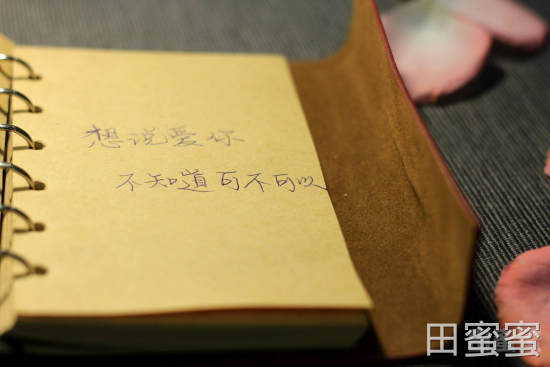 想说爱你
不知道可不可以
田蜜蜜